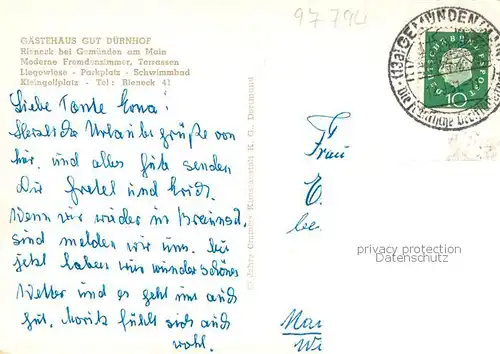 97 794
GÄSTEHAUS GUT DÜRNHOF
Rieneck bei Gemünden am Main
Moderne Fremdenzimmer, Terrassen
Liegewiese - Parkplatz - Schwimmbad
Kleingolfplatz - Tel: Rieneck 41
Liebe Tante Erna!
Herzliche Urlaubsgrüße von
hier, und alles Gute senden
Dir Gretel und Erich.
Wenn wir wieder in Braunsch.
sind melden wir uns. Bis
jetzt haben wir wunderschönes
Wetter und es geht uns auch
gut. Moritz fühlt sich auch
wohl.
K. G., Dortmund
DEUTSCHE BUNDESPOST
10
(13a) GEMÜNDEN
Frau
E.
privacy protection
Datenschutz